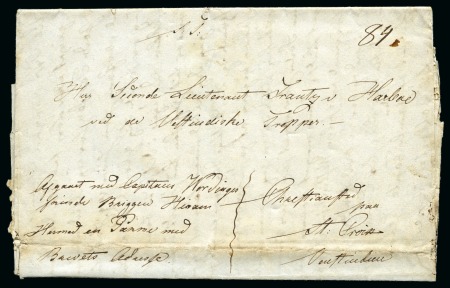 S. T.
84
Hr Seconde Lieutenant Frantz v Harboe
ved de Vestindiske Tropper. —
Afgaaet med Capitain Nordinger
førende Briggen Hiram
Hermed en Pakke med
Brevets Adresse.
Christianstæd
paa
St. Croix
Vestindien